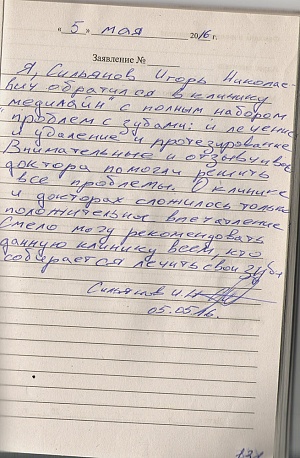 « 5 » мая 2016 г.
Заявление №
Я, Сильянов Игорь Николае-
вич обратился в клинику
"Медилайн" с полным набором
проблем с зубами: и лечение
и удаление и протезирование
Внимательные и отзывчивые
доктора помогли решить
все проблемы. О клинике
и докторах сложилось только
положительное впечатление
Смело могу рекомендовать
данную клинику всем, кто
собирается лечить свои зубы
Сильянов И.Н.
05.05.16.